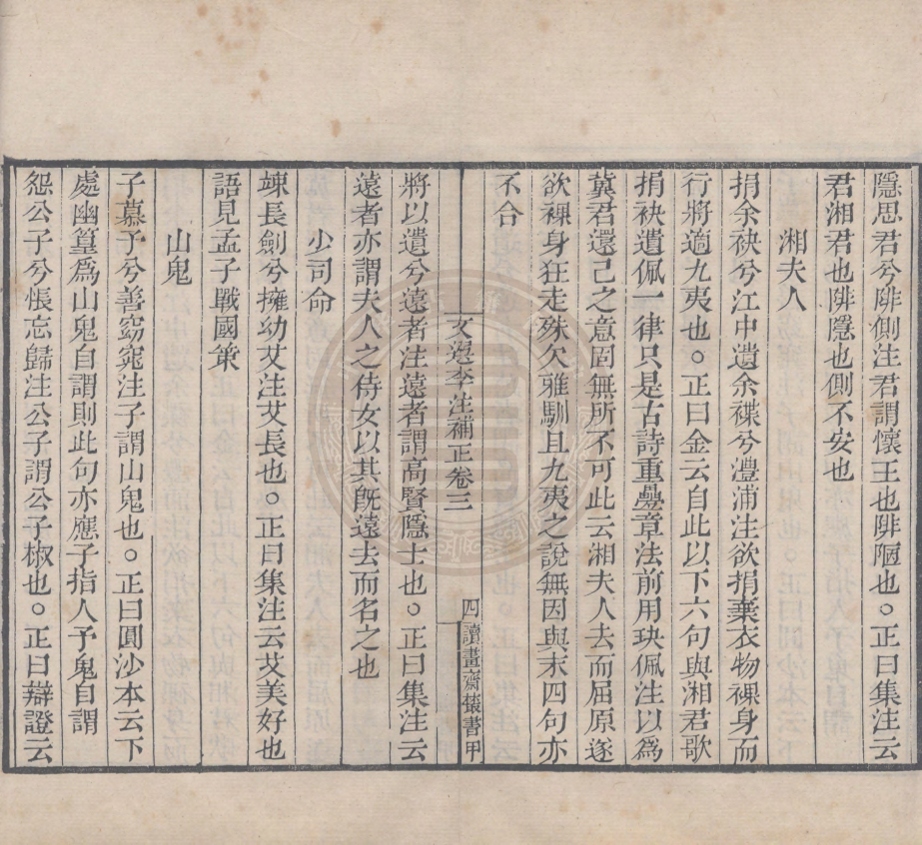 隱思君兮陫側注君謂懷王也陫陋也○正曰集注云
君湘君也陫隱也側不安也
湘夫人
捐余袂兮江中遺余褋兮澧浦注欲捐棄衣物裸身而
行將適九夷也○正曰金云自此以下六句與湘君歌
捐袂遺佩一律只是古詩重疊章法前用玦佩注以爲
冀君還己之意固無所不可此云湘夫人去而屈原遂
欲裸身狂走殊欠雅馴且九夷之說無因與末四句亦
不合
文選李注補正卷三
四
讀畫齋叢書甲
將以遺兮遠者注遠者謂高賢隱士也○正曰集注云
遠者亦謂夫人之侍女以其旣遠去而名之也
少司命
竦長劍兮擁幼艾注艾長也○正曰集注云艾美好也
語見孟子戰國策
山鬼
子慕予兮善窈窕注子謂山鬼也○正曰圓沙本云下
處幽篁爲山鬼自謂則此句亦應子指人予鬼自謂
怨公子兮悵忘歸注公子謂公子椒也○正曰辯證云